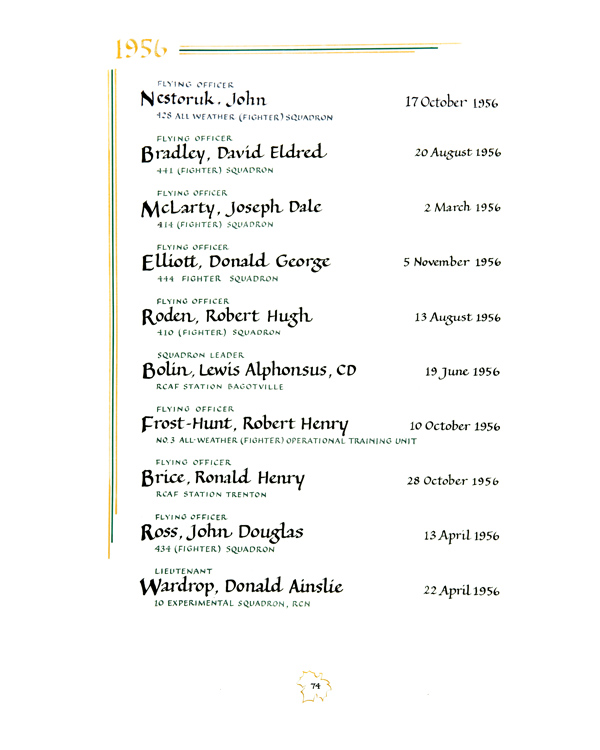 1956
FLYING OFFICER
Nestoruk, John 17 October 1956
428 ALL WEATHER (FIGHTER) SQUADRON
FLYING OFFICER
Bradley, David Eldred 20 August 1956
441 (FIGHTER) SQUADRON
FLYING OFFICER
McLarty, Joseph Dale 2 March 1956
414 (FIGHTER) SQUADRON
FLYING OFFICER
Elliott, Donald George 5 November 1956
444 FIGHTER SQUADRON
FLYING OFFICER
Roden, Robert Hugh 13 August 1956
410 (FIGHTER) SQUADRON
SQUADRON LEADER
Bolin, Lewis Alphonsus, CD 19 June 1956
RCAF STATION BAGOTVILLE
FLYING OFFICER
Frost-Hunt, Robert Henry 10 October 1956
NO. 3 ALL-WEATHER (FIGHTER) OPERATIONAL TRAINING UNIT
FLYING OFFICER
Brice, Ronald Henry 28 October 1956
RCAF STATION TRENTON
FLYING OFFICER
Ross, John Douglas 13 April 1956
434 (FIGHTER) SQUADRON
LIEUTENANT
Wardrop, Donald Ainslie 22 April 1956
10 EXPERIMENTAL SQUADRON, RCN
74